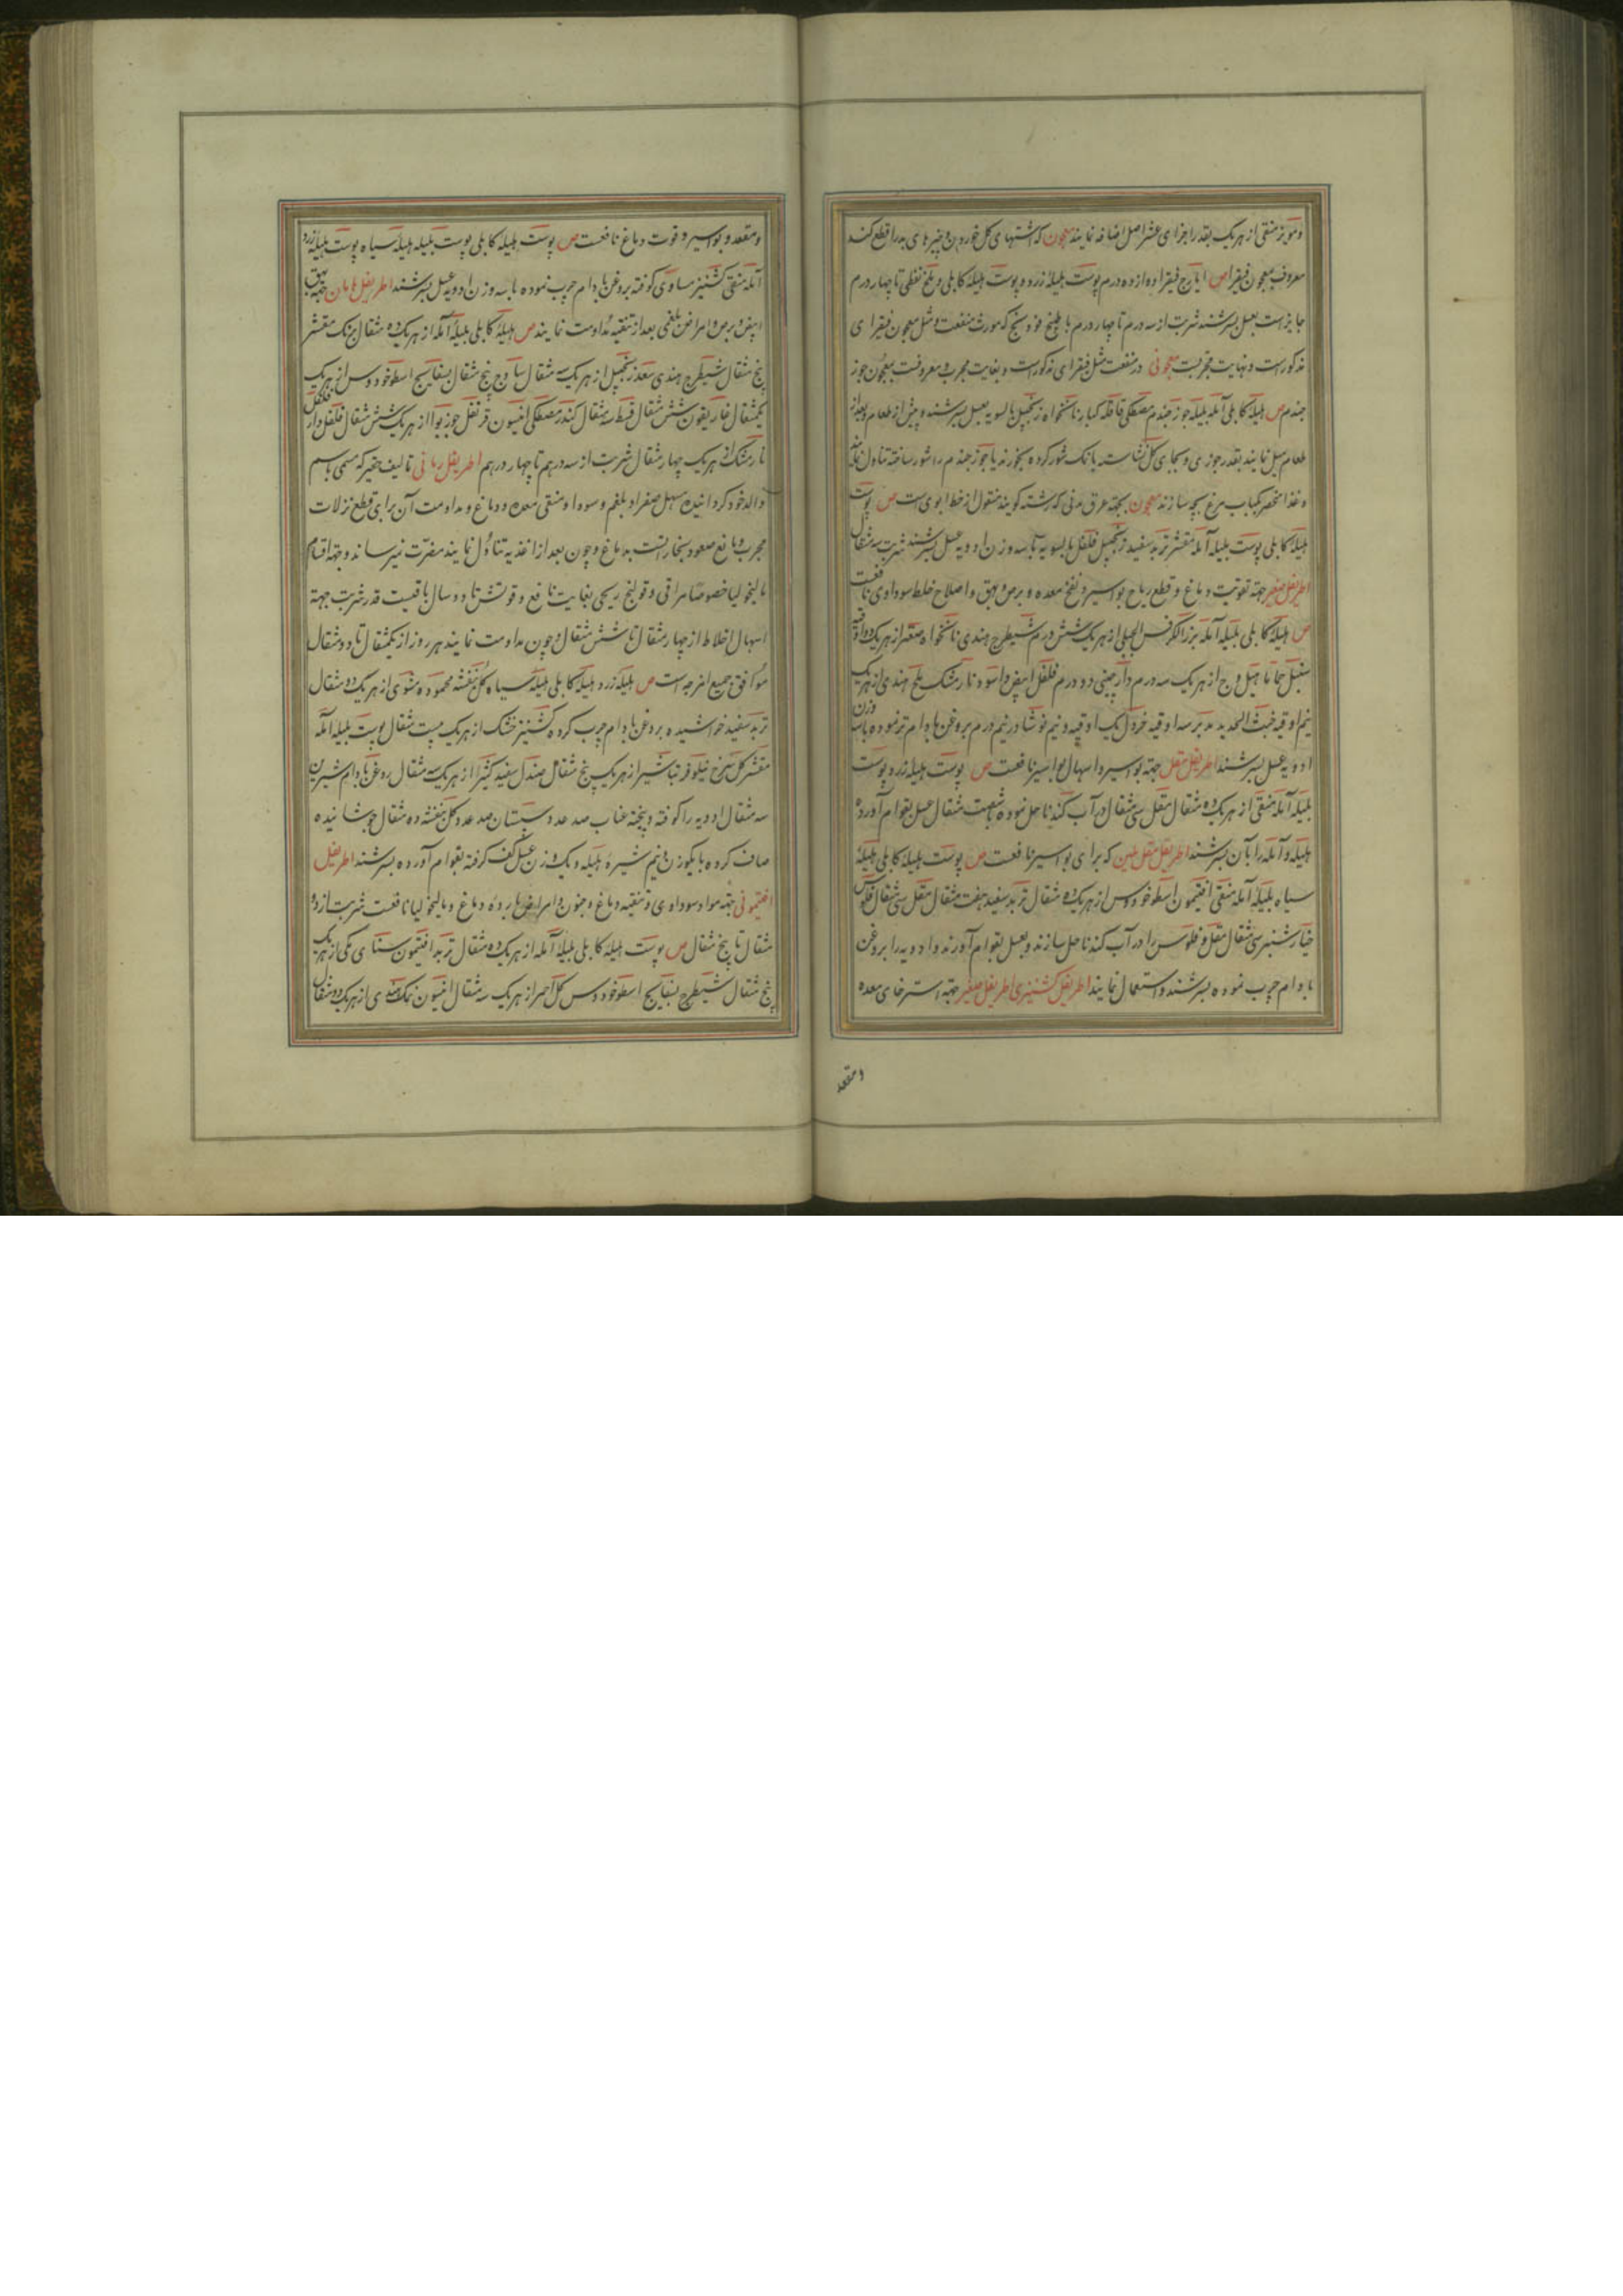 ومویز منقی از هر یک بقدر اجزای عشر اصل اضافه نمایند معجون که اشتهای کل خوردن و چیزهای بد را قطع کند
معروف بمعجون فیقرا ص ایارج فیقرا ده از ده درم پوست هلیله زرد و پوست هلیله کابلی و ملح نفطی تا چهار درم
جایز است بعسل بسرشند شربت از سه درم تا چهار درم با طبیخ که مورث منفعت و مثل معجون فیقرای
مذکور است و نهایت مجربست معجونی در منفعت مثل فیقرای مذکور است و بغایت مجرب و معروفست بمعجون جوز
جندم ص هلیله کابلی آمله بلیله جوز جندم مصطکی قاقله کبار نانخواه زنجبیل بالسویه بعسل بسرشند و پیش از طعام و بعد از
طعام میل نمایند بقدر جوزی و بجای کل نشاسته با نمک شور کرده بخورند یا جوز جندم را شور ساخته تناول نمایند
و غذا منحصر بکباب مرغ بچه سازند معجون بجهة عرق مدنی که رشته گویند منقول از خط ابوی است ص پوست
هلیله کابلی پوست بلیله آمله مقشر تربد سفید زنجبیل فلفل بالسویه با سه وزن ادویه عسل بسرشند شربت سه مثقال
اطریفل صغیر جهة تقویت دماغ و قطع ریاح بواسیر و نفخ معده و برص و بهق و اصلاح خلط سوداوی نافعست
ص هلیله کابلی بلیله آمله بزرالکرفس الجبلی از هر یک شش درم شیطرج هندی نانخواه صعتر از هر یک دو اوقیه
سنبل حاما هیل وج از هر یک سه درم دارچینی دو درم فلفل ابیض و اسود نارمشک ملح هندی از هر یک
نیم اوقیه خبث الحدید مدبر سه اوقیه خردل یک اوقیه و نیم نوشادر نیم درم بروغن بادام تر نموده با سه وزن
ادویه عسل بسرشند اطریفل مقل جهة بواسیر و اسهال بواسیر نافعست ص پوست هلیله زرد و پوست
بلیله آمله منقی از هر یک ده مثقال مقل سی مثقال در آب گندنا حل نموده شصت مثقال عسل بقوام آورده
هلیله و آمله را بآن بسرشند اطریفل مقل ملین که برای بواسیر نافعست ص پوست هلیله کابلی هلیله
سیاه بلیله آمله منقی افتیمون اسطوخودوس از هر یک ده مثقال تربد سفید هفت مثقال مقل سی مثقال فلوس
خیارشنبر سی مثقال مقل و فلوس را در آب گندنا حل سازند و بعسل بقوام آورند و ادویه را بروغن
بادام چرب نموده بسرشند و استعمال نمایند اطریفل کشنیزی اطریفل صغیر جهة استرخای معده
ومقعد
ومقعد و بواسیر و قوت دماغ نافعست ص پوست هلیله کابلی پوست بلیله هلیله سیاه پوست هلیله زرد
آمله منقی کشنیز مساوی کوفته بروغن بادام چرب نموده با سه وزن ادویه عسل بسرشند اطریفل هامان جهة بهق
ابیض و برص و امراض بلغمی بعد از تنقیه مداومت نمایند ص هلیله کابلی بلیله آمله از هر یک ده مثقال برنک مقشر
پنج مثقال شیطرج هندی سعد زنجبیل از هر یک سه مثقال ساذج پنج مثقال بسفایج اسطوخودوس از هر یک
یکمثقال غاریقون شش مثقال قسط سه مثقال کندر مصطکی انیسون قرنفل جوزبوا از هر یک شش مثقال فلفل دارفلفل
نارمشک از هر یک چهار مثقال شربت از سه درهم تا چهار درهم اطریفل زمانی تالیف حقیر که مسمی باسم
والد خود گردانیده مسهل صفرا و بلغم و سودا و منقی معده و دماغ و مداومت آن برای قطع نزلات
مجرب و مانع صعود بخار است بدماغ و چون بعد از اغذیه تناول نمایند مضرت نمیرساند و جهة اقسام
مالیخولیا خصوصا مراقی و قولنج ریحی بغایت نافع و قوتش تا دو سال باقیست قدر شربت جهة
اسهال اخلاط از چهار مثقال تا شش مثقال و چون مداومت نمایند هر روز از یکمثقال تا دو مثقال
موافق جمیع امزجه است ص هلیله زرد هلیله کابلی هلیله سیاه گل بنفشه محموده مشوی از هر یک ده مثقال
تربد سفید خراشیده بروغن بادام چرب کرده کشنیز خشک از هر یک بیست مثقال پوست بلیله آمله
مقشر گل سرخ نیلوفر تباشیر از هر یک پنج مثقال صندل سفید کثیرا از هر یک سه مثقال روغن بادام شیرین
سه مثقال ادویه را کوفته و پخته عناب صد عدد سپستان صد عدد گل بنفشه ده مثقال جوشانیده
صاف کرده با یکوزن و نیم شیره هلیله و یک وزن عسل کف گرفته بقوام آورده بسرشند اطریفل
افتیمونی جهة مواد سوداوی و تنقیه دماغ و جنون و امراض بارده دماغ و مالیخولیا نافعست شربت از دو
مثقال تا پنج مثقال ص پوست هلیله کابلی بلیله آمله از هر یک ده مثقال تربد افتیمون سنای مکی از هر یک
پنج مثقال شیطرج بسفایج اسطوخودوس گل احمر از هر یک سه مثقال انیسون نمک هندی از هر یک دو مثقال